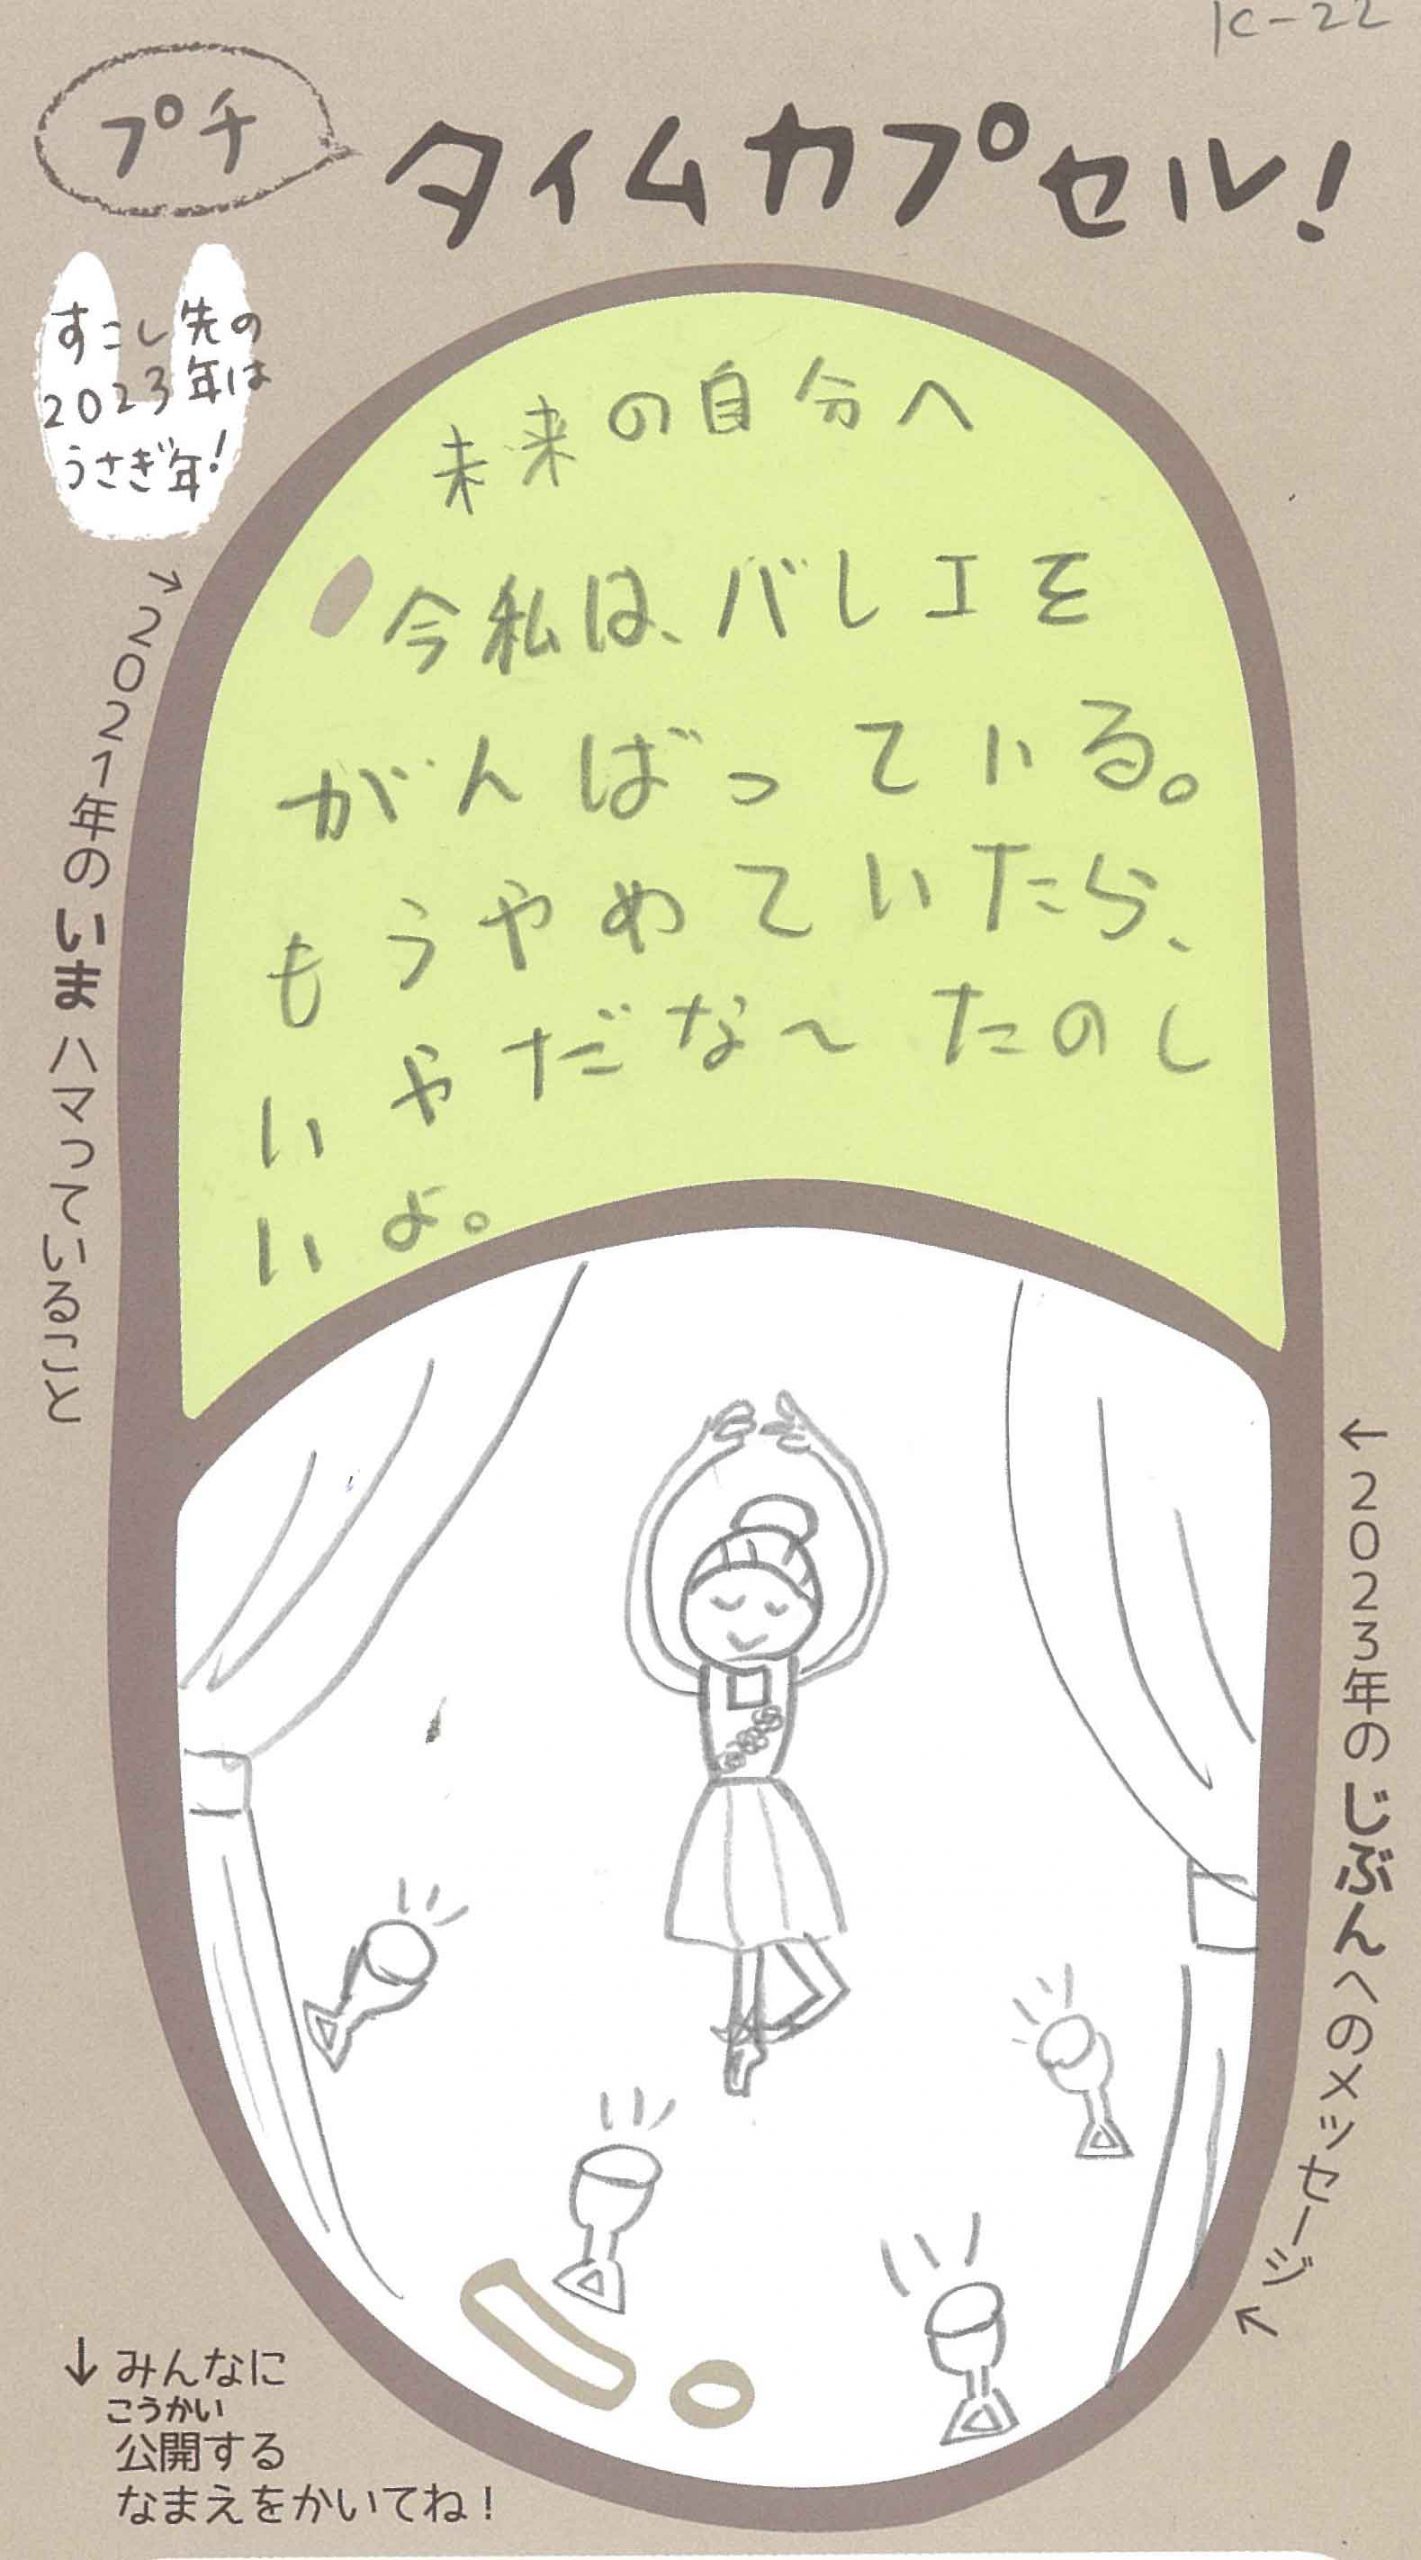 K-22
プチ
タイムカプセル!
すこし先の
2023年は
うさぎ年!
未来の自分へ
今私は、バレエを
がんばっている。
もうやめていたら、
いやだな～たのし
いよ。
↑2021年のいまハマっていること
←2023年のじぶんへのメッセージ↑
↓みんなに
こうかい
公開する
なまえをかいてね!